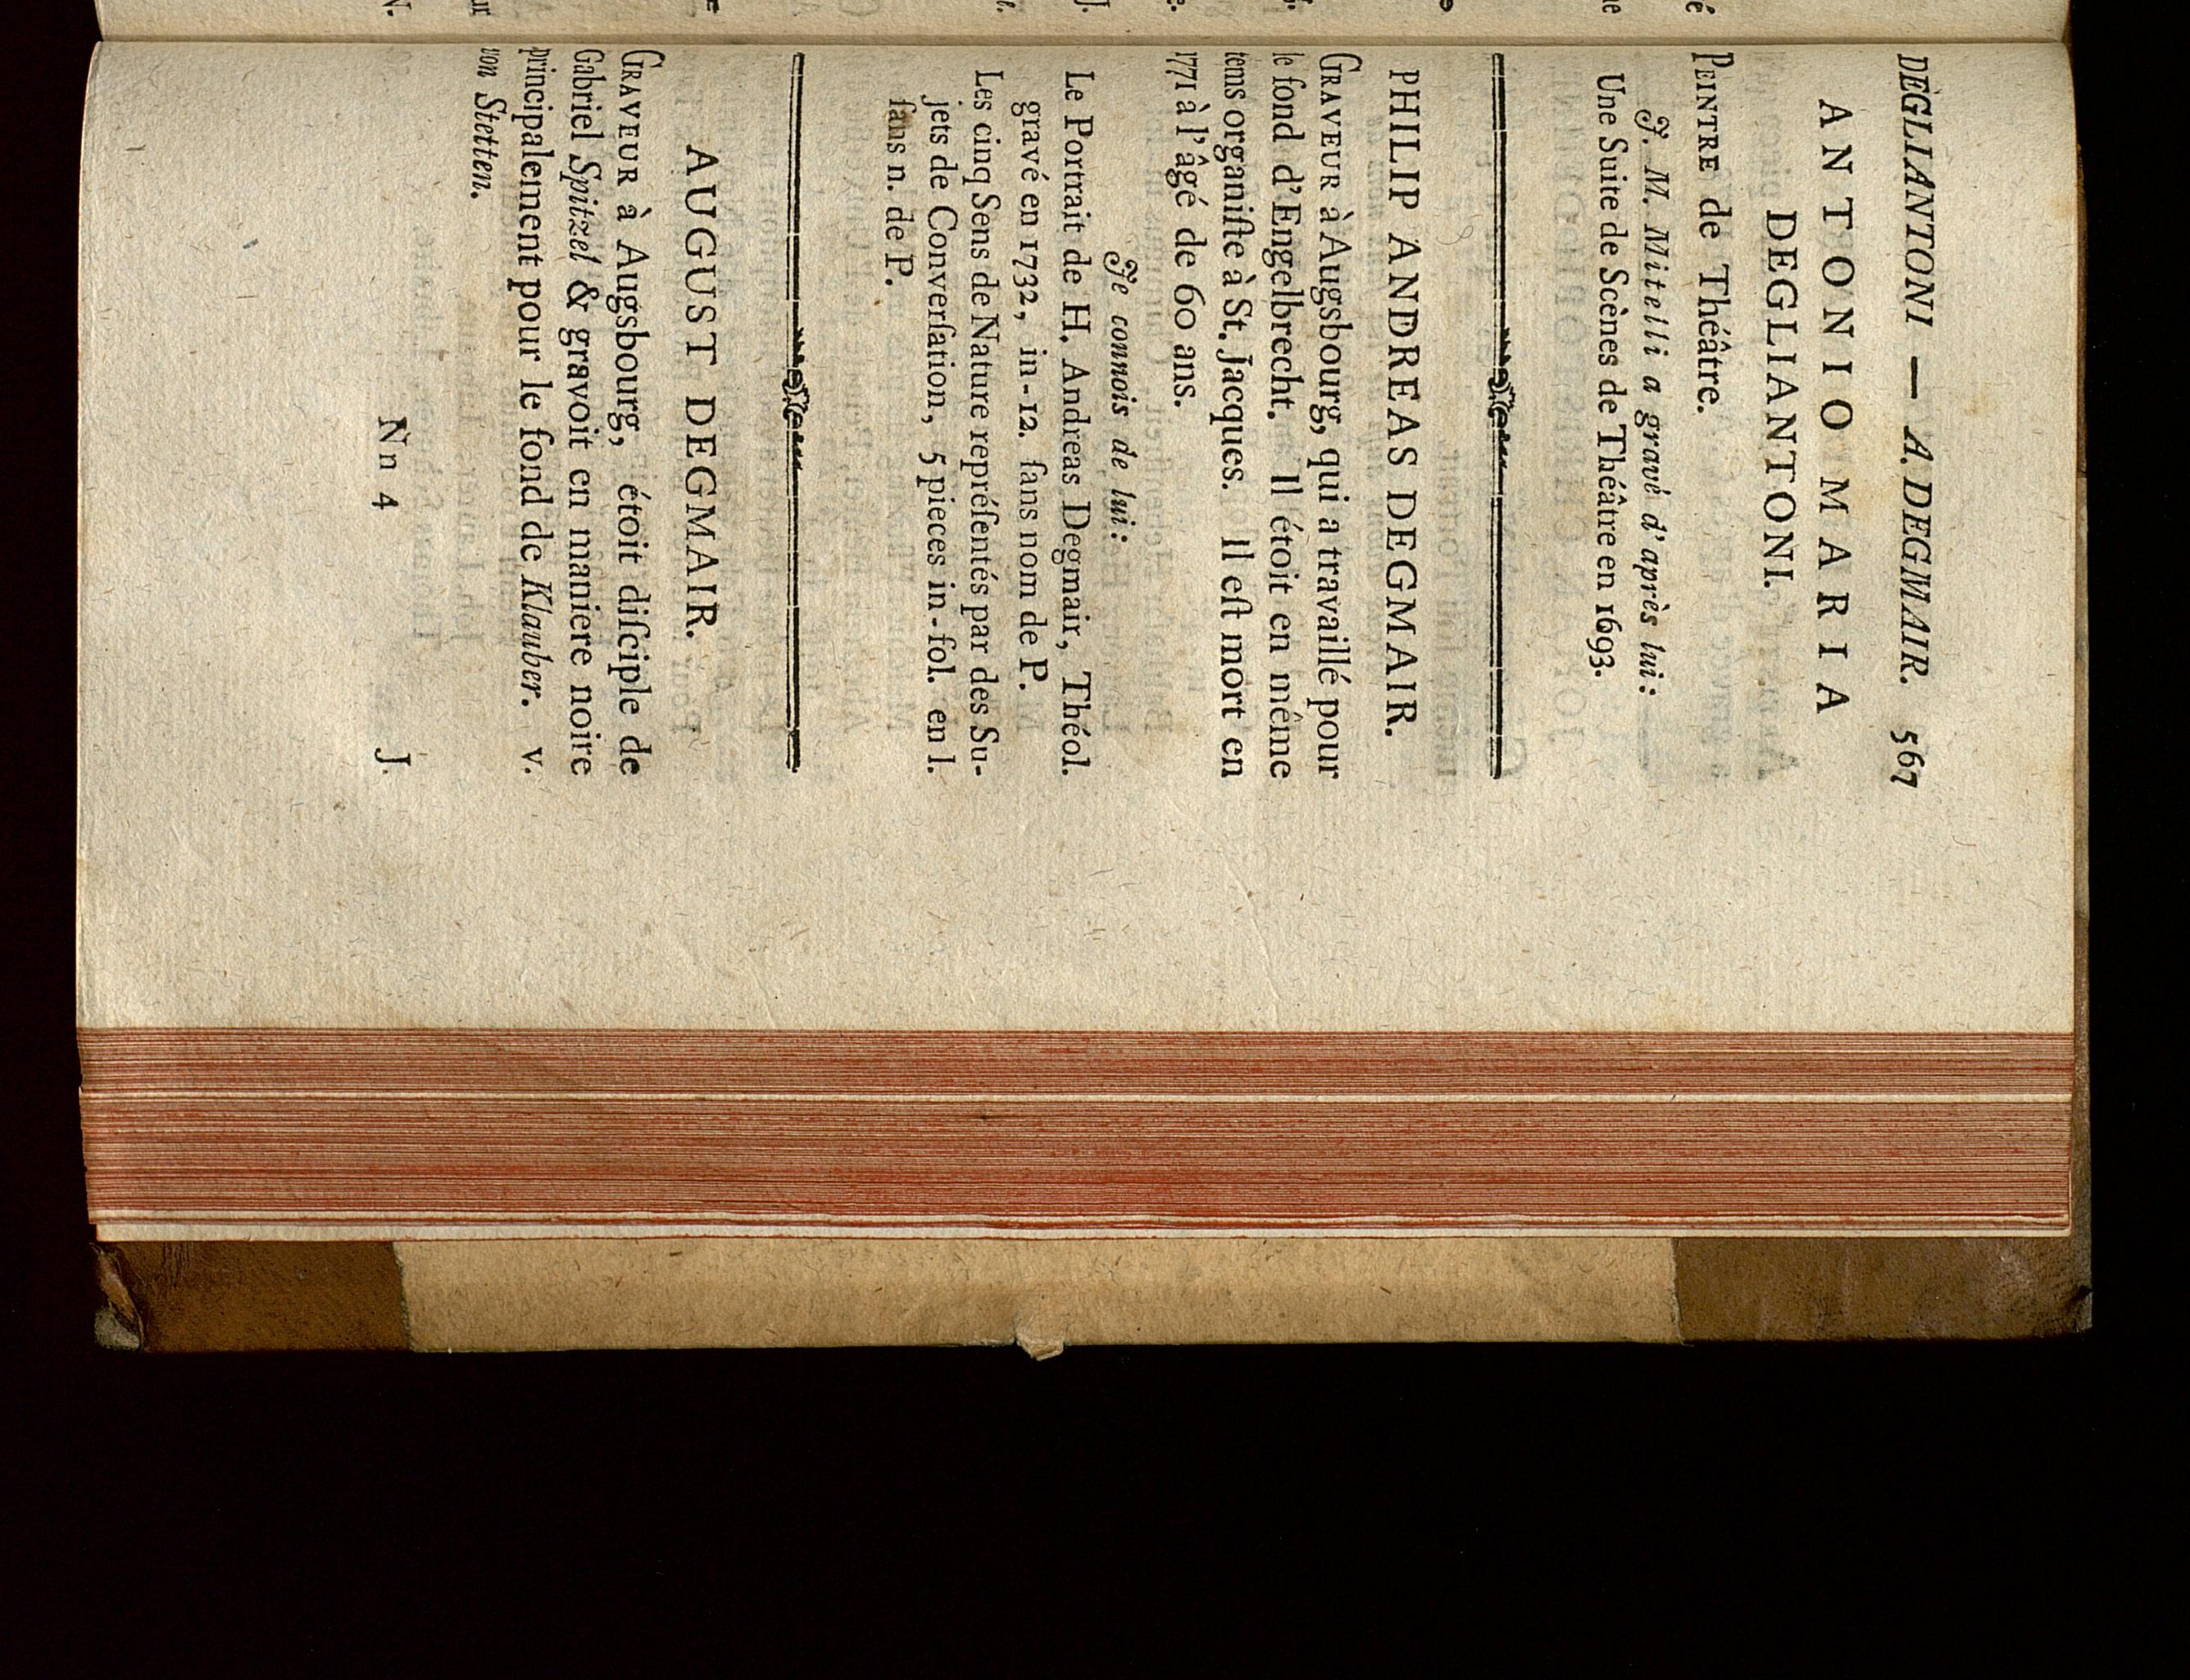 DEGLIANTONI — A. DEGMAIR. 567
ANTONIO MARIA
DEGLIANTONI.
PEINTRE de Théâtre.
J. M. Mitelli a gravé d'après lui:
Une Suite de Scènes de Théâtre en 1693.
PHILIP ANDREAS DEGMAIR.
GRAVEUR à Augsbourg, qui a travaillé pour
le fond d'Engelbrecht. Il étoit en même
tems organiſte à St. Jacques. Il eſt mort en
1771 à l'âgé de 60 ans.
Je connois de lui:
Le Portrait de H. Andreas Degmair, Théol.
gravé en 1732, in-12. ſans nom de P.
Les cinq Sens de Nature repréſentés par des Su-
jets de Converſation, 5 pieces in-fol. en l.
ſans n. de P.
AUGUST DEGMAIR.
GRAVEUR à Augsbourg, étoit diſciple de
Gabriel Spitzel & gravoit en maniere noire
principalement pour le fond de Klauber. v.
von Stetten.
Nn 4 J.